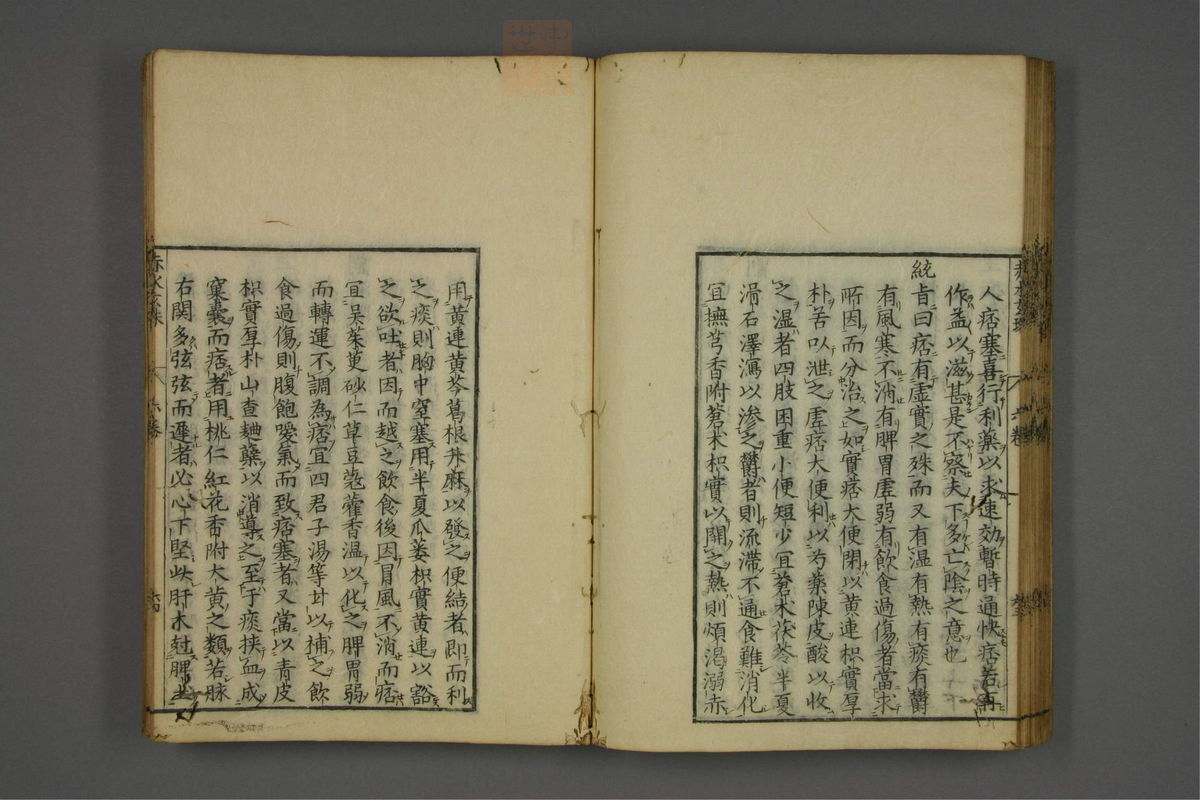 人痞塞喜行利藥以求速効暫時通快痞若再
作益以滋甚是不察夫下多亡陰之意也
統旨曰痞有虛實之殊而又有濕有熱有痰有鬱
有風寒不消有脾胃虛弱有飲食過傷者當求
所因而分治之如實痞大便閉以黄連枳實厚
朴苦以泄之虛痞大便利以芍藥陳皮酸以收
之濕者四肢困重小便短少宜蒼术茯苓半夏
滑石澤瀉以滲之鬱者則流滯不通食難消化
宜撫芎香附蒼术枳實以開之熱則煩渴溺赤
用黄連黄芩葛根升麻以發之便結者即而利
之痰則胸中窒塞用半夏瓜蔞枳實黄連以豁
之欲吐者因而越之飲食後因冒風不消而痞
宜吴茱萸砂仁草豆蔻藿香温以化之脾胃弱
而轉運不調為痞宜四君子湯等甘以補之飲
食過傷則腹飽噯氣而致痞塞者又當以青皮
枳實厚朴山查麯蘗以消導之至于痰挟血成
窠囊而痞者用桃仁紅花香附大黄之類若脉
右関多弦弦而遲者必心下堅此肝木尅脾土
赤水玄珠